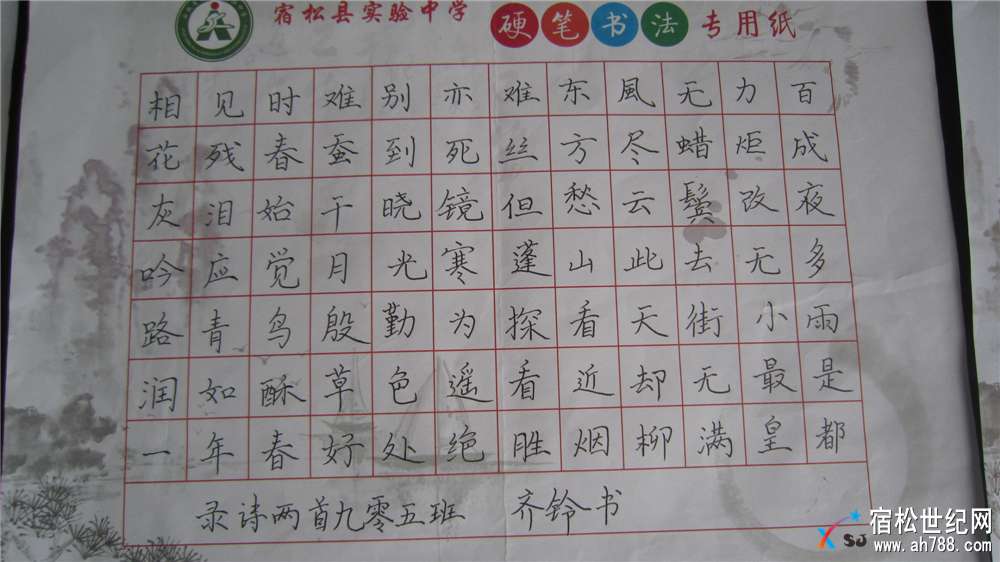 宿松县实验中学 硬笔书法 专用纸
相见时难别亦难东風无力百
花残春蚕到死丝方尽蜡炬成
灰泪始干晓镜但愁云鬓改夜
吟应觉月光寒蓬山此去无多
路青鸟殷勤为探看天街小雨
润如酥草色遥看近却无最是
一年春好处绝胜烟柳满皇都
录诗两首九零五班 齐铃书
宿松世纪网
SJ www.ah788.com